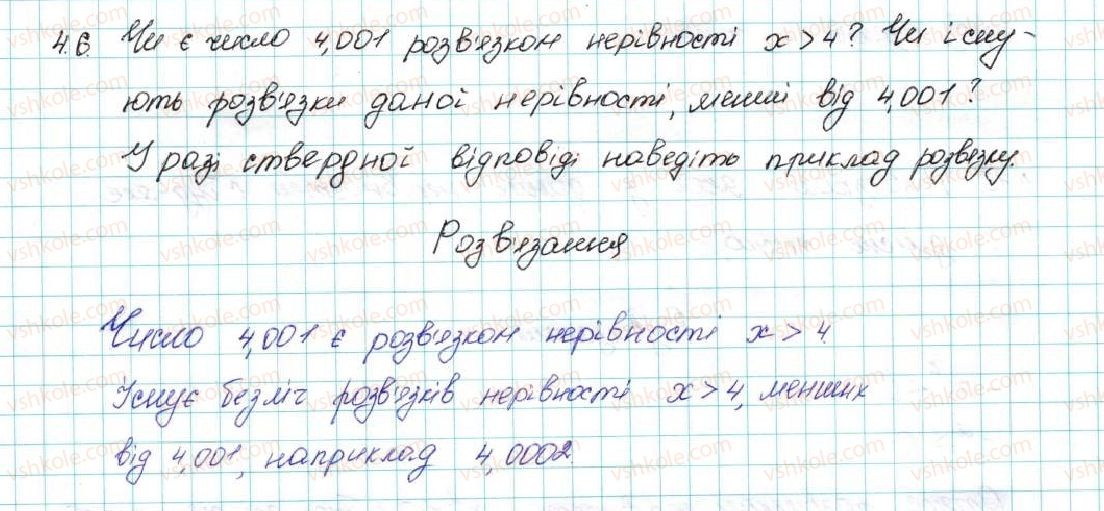 4.6. Чи є число 4,001 розв'язком нерівності x > 4? Чи існу-
ють розв'язки даної нерівності, менші від 4,001?
У разі ствердної відповіді наведіть приклад розв'язку.
Розв'язання
Число 4,001 є розв'язком нерівності x > 4.
Існує безліч розв'язків нерівності x > 4, менших
від 4,001, наприклад 4,0002.